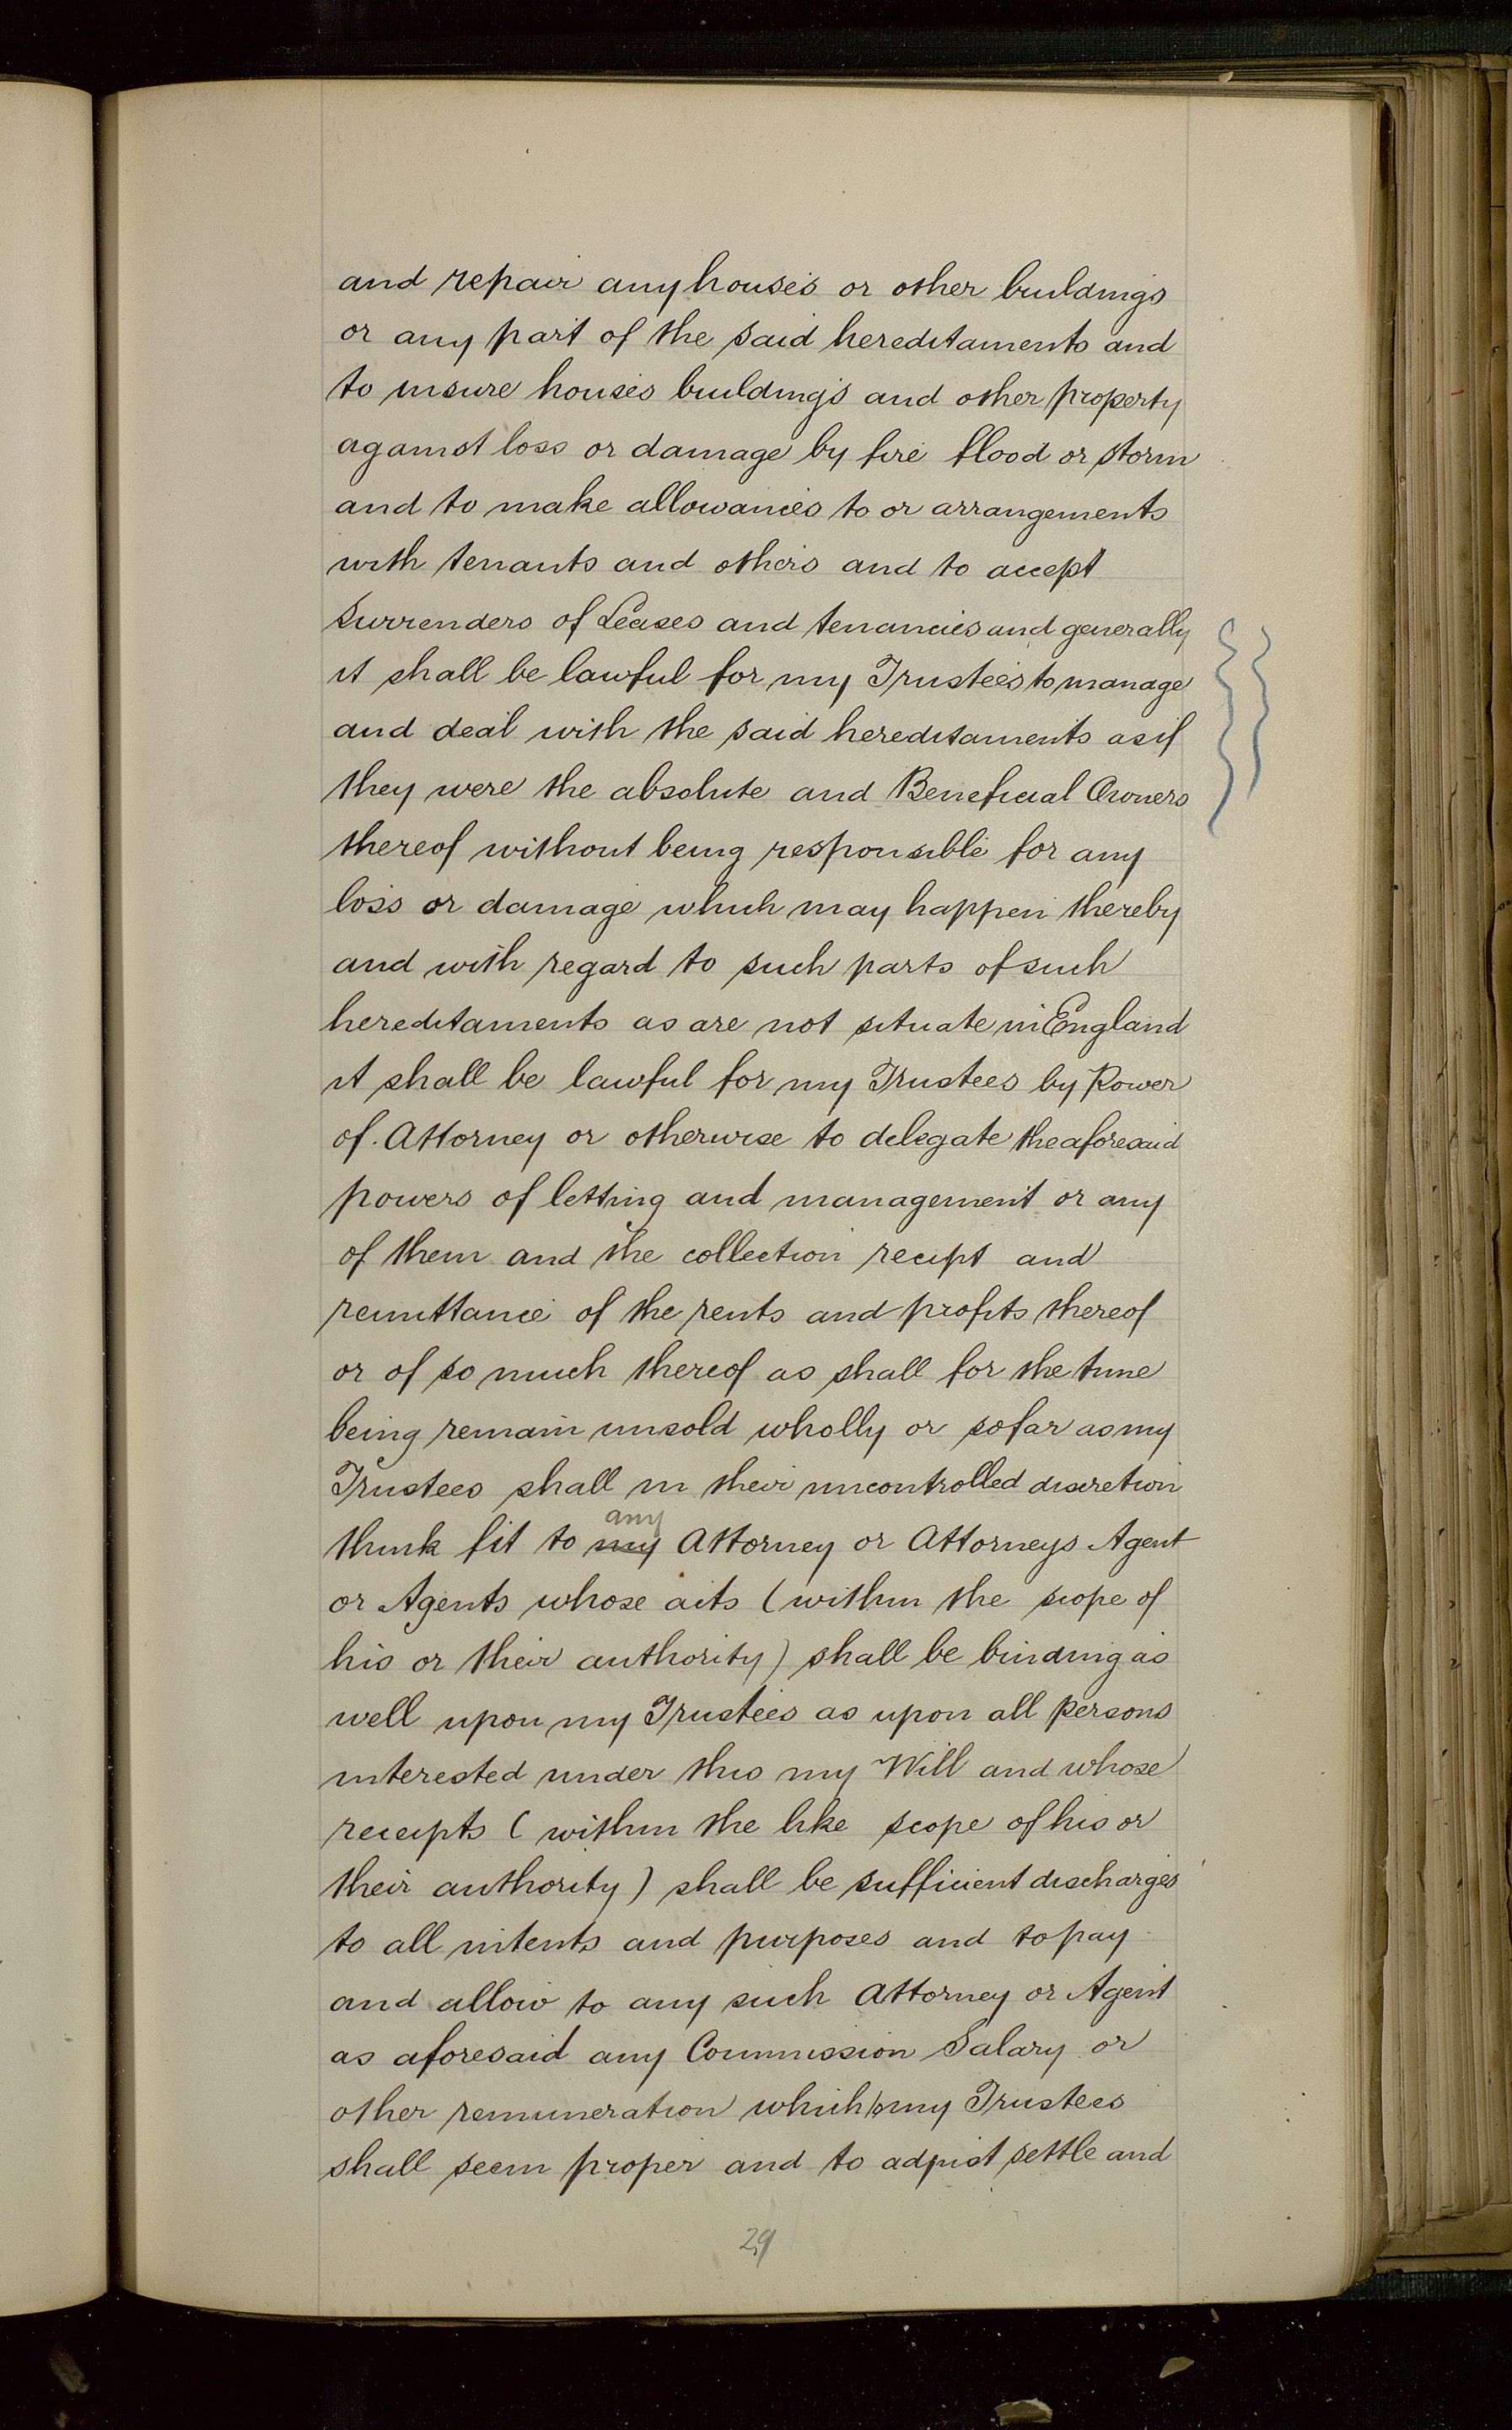 and repair any houses or other buildings
or any part of the said hereditaments and
to insure houses buildings and other property
against loss or damage by fire flood or storm
and to make allowances to or arrangements
with tenants and others and to accept
surrenders of Leases and tenancies and generally
it shall be lawful for my Trustees to manage
and deal with the said hereditaments as if
they were the absolute and Beneficial Owners
thereof without being responsible for any
loss or damage which may happen thereby
and with regard to such parts of such
hereditaments as are not situate in England
it shall be lawful for my Trustees by Power
of Attorney or otherwise to delegate the aforesaid
powers of letting and management or any
of them and the collection receipt and
remittance of the rents and profits thereof
or of so much thereof as shall for the time
being remain unsold wholly or so far as my
Trustees shall in their uncontrolled discretion
any
think fit to my Attorney or Attorneys Agent
or Agents whose acts (within the scope of
his or their authority) shall be binding as
well upon my Trustees as upon all persons
interested under this my Will and whose
receipts (within the like scope of his or
their authority) shall be sufficient discharges
to all intents and purposes and to pay
and allow to any such Attorney or Agent
as aforesaid any Commission Salary or
other remuneration which to my Trustees
shall seem proper and to adjust settle and
29